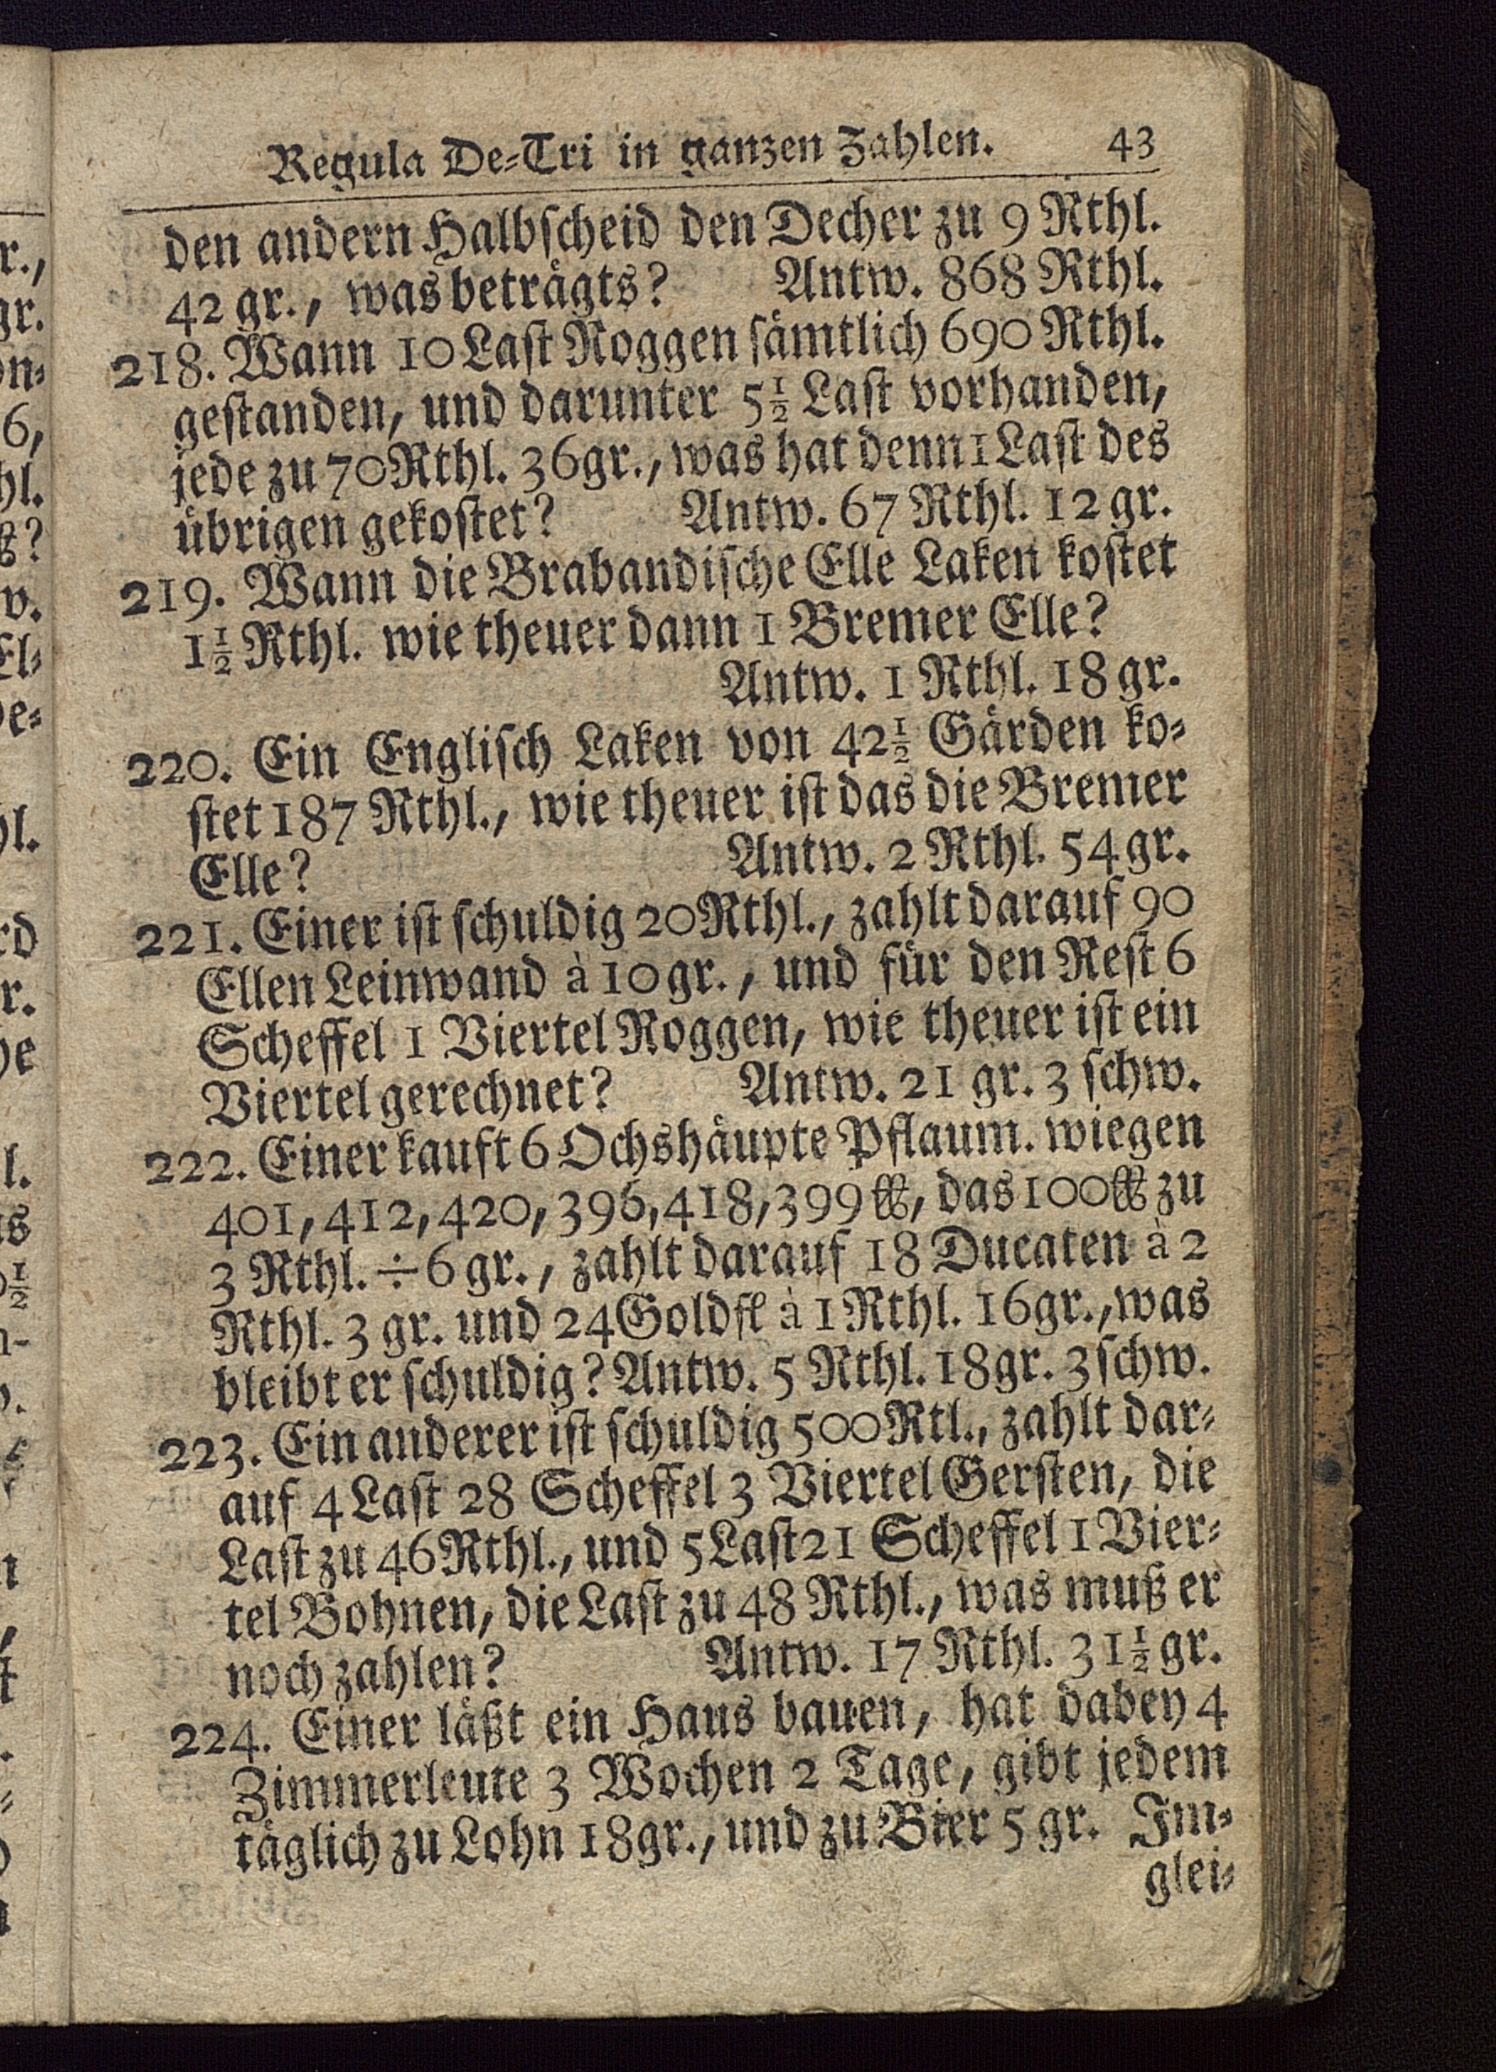 r.,
gr.
on-
6,
hl.
℔?
w.
El-
de-
hl.
rd
r.
he
l.
½
Regula De-Tri in ganzen Zahlen. 43
den andern Halbscheid den Decher zu 9 Rthl.
42 gr., was beträgts? Antw. 868 Rthl.
218. Wann 10 Last Roggen sämtlich 690 Rthl.
gestanden, und darunter 5½ Last vorhanden,
jede zu 70 Rthl. 36 gr., was hat denn 1 Last des
übrigen gekostet? Antw. 67 Rthl. 12 gr.
219. Wann die Brabandische Elle Laken kostet
1½ Rthl. wie theuer dann 1 Bremer Elle?
Antw. 1 Rthl. 18 gr.
220. Ein Englisch Laken von 42½ Gärden ko-
stet 187 Rthl., wie theuer ist das die Bremer
Elle? Antw. 2 Rthl. 54 gr.
221. Einer ist schuldig 20 Rthl., zahlt darauf 90
Ellen Leinwand à 10 gr., und für den Rest 6
Scheffel 1 Viertel Roggen, wie theuer ist ein
Viertel gerechnet? Antw. 21 gr. 3 schw.
222. Einer kauft 6 Ochshäupte Pflaum. wiegen
401, 412, 420, 396, 418, 399 ℔, das 100 ℔ zu
3 Rthl. ÷ 6 gr., zahlt darauf 18 Ducaten à 2
Rthl. 3 gr. und 24 Goldfl à 1 Rthl. 16 gr., was
bleibt er schuldig? Antw. 5 Rthl. 18 gr. 3 schw.
223. Ein anderer ist schuldig 500 Rtl., zahlt dar-
auf 4 Last 28 Scheffel 3 Viertel Gersten, die
Last zu 46 Rthl., und 5 Last 21 Scheffel 1 Vier-
tel Bohnen, die Last zu 48 Rthl., was muß er
noch zahlen? Antw. 17 Rthl. 31½ gr.
224. Einer läßt ein Haus bauen, hat dabey 4
Zimmerleute 3 Wochen 2 Tage, gibt jedem
täglich zu Lohn 18 gr., und zu Bier 5 gr. Im-
glei-